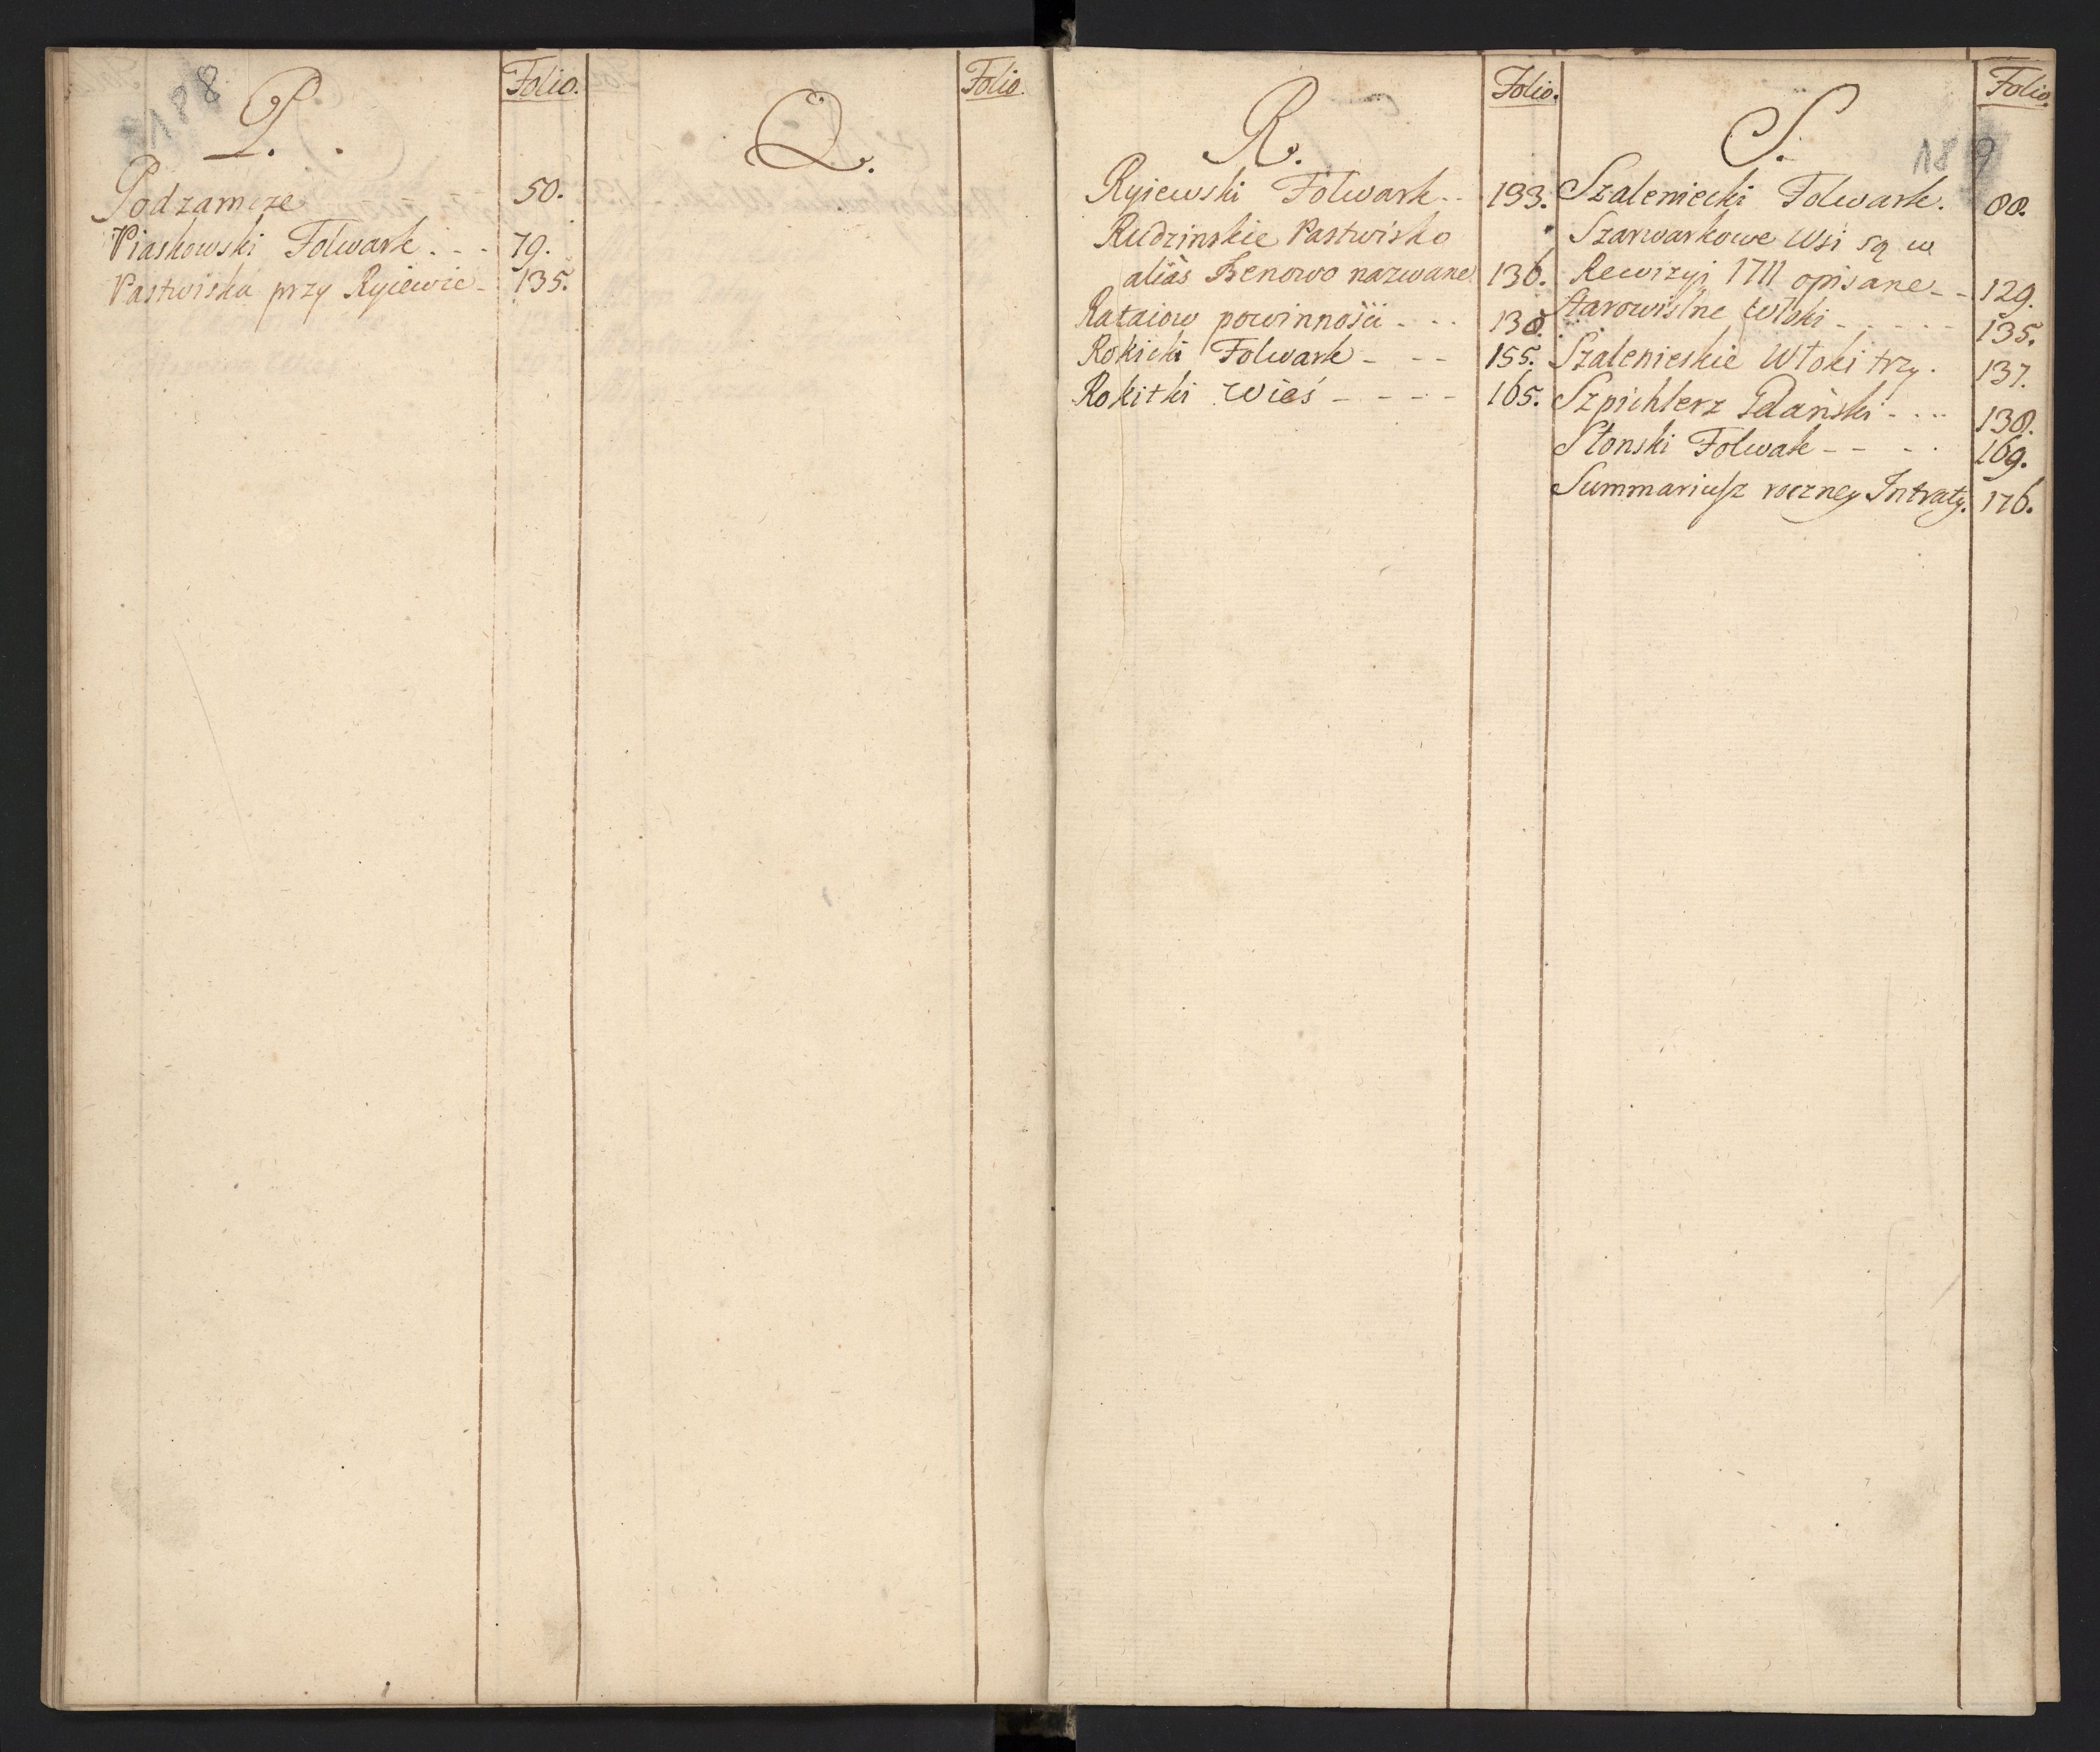 188
P.
Folio.
Podzamcze 50.
Piaskowski Folwark . - - 79.
Pastwiska przy Ryiewie - 135.
Q.
Folio.
R.
Folio.
Ryiewski Folwark - - 133.
Rudzinskie Pastwisko
aliàs Benowo nazwane 136.
Rataiow powinnośći - - - 138.
Rokicki Folwark - - - 155.
Rokitki Wieś - - - - 165.
S.
Folio.
189
Szaleniecki Folwark. 88.
Szarwarkowe Wsi są w
Rewizyi 1711 opisane - - 129.
Starowislne Włoki - - - - - 135.
Szalenieskie Włoki trzy. 137.
Szpichlerz Gdański - - - 138.
Słonski Folwark - - - - 169.
Summariusz roczney Intraty. 176.